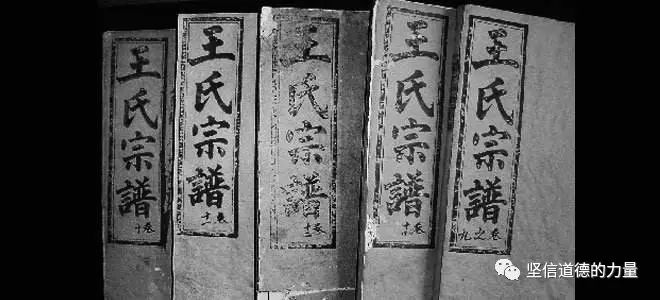 王氏宗譜
卷十
王氏宗譜
卷十一
王氏宗譜
卷
王氏宗譜
卷十
王氏宗譜
卷之九
坚信道德的力量